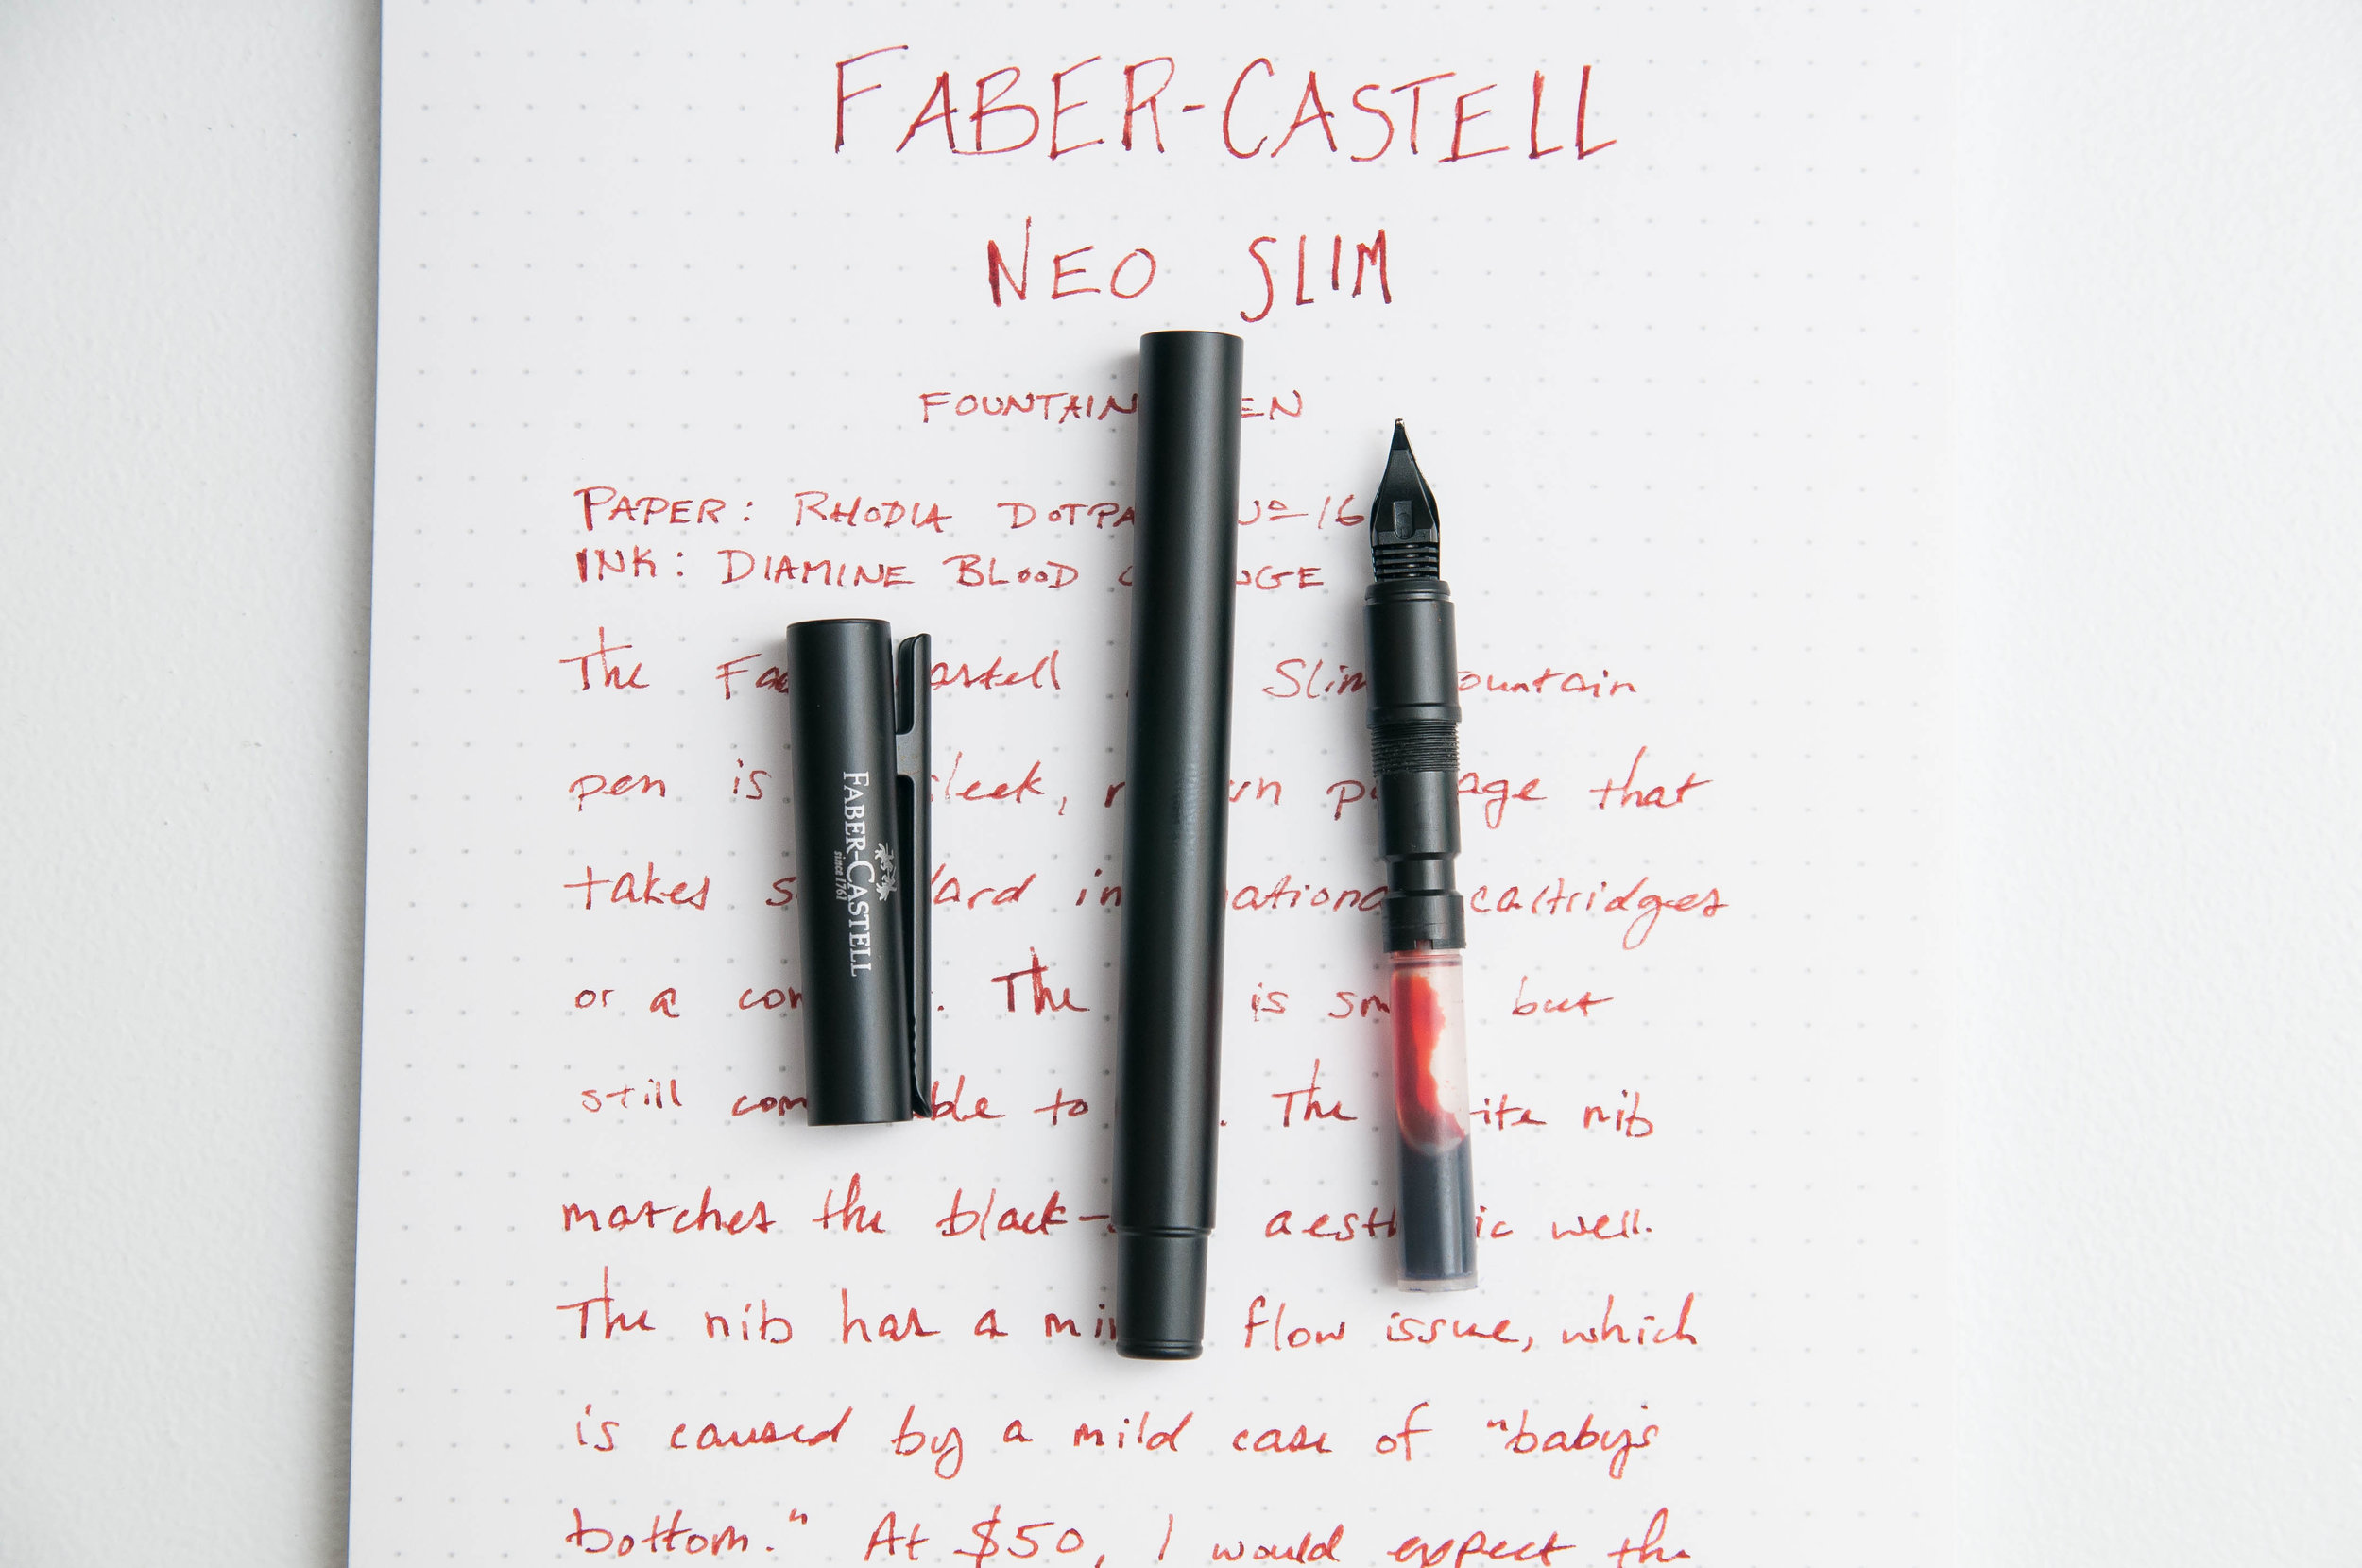 FABER-CASTELL
NEO SLIM
FOUNTAIN EN
PAPER: RHODIA DOTPA Nº 16
INK: DIAMINE BLOOD NGE
The Fa astell Slim ountain
pen is sleek, wn p age that
takes s dard in national cartridges
or a con . The is sm but
still com ble to . The ite nib
matches the black- aesth ic well.
The nib has a min flow issue, which
is caused by a mild case of "baby's
bottom." At $50, I would expect the
FABER-CASTELL
since 1761